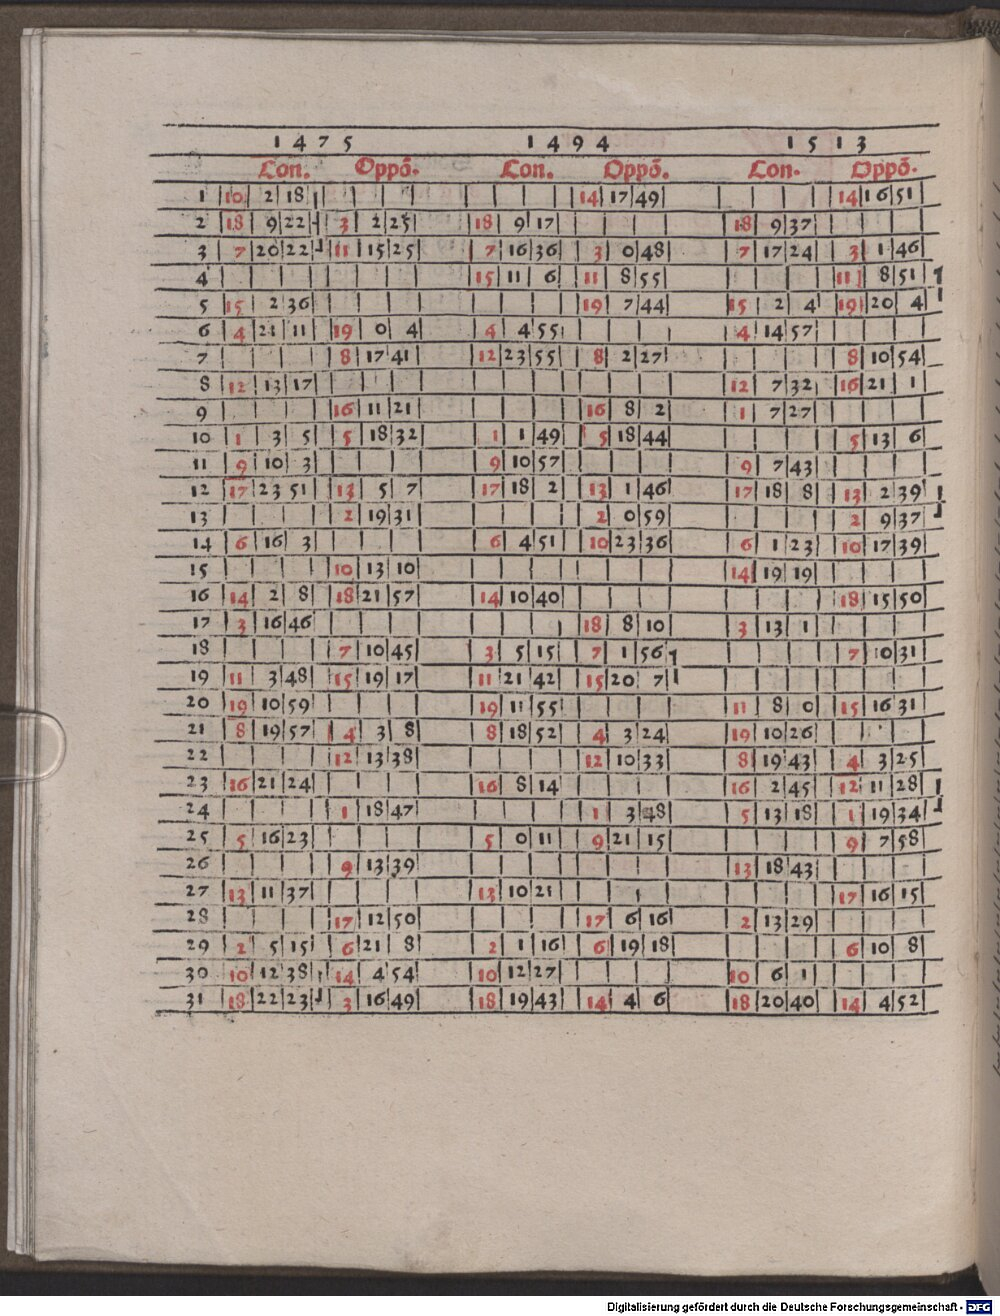 1475 1494 1513
Con. Oppō. Con. Oppō. Con. Oppō.
1 10 2 18 14 17 49 14 16 51
2 18 9 22 3 2 25 18 9 17 18 9 37
3 7 20 22 11 15 25 7 16 36 3 0 48 7 17 24 3 1 46
4 15 11 6 11 8 55 11 8 51
5 15 2 36 19 7 44 15 2 4 19 20 4
6 4 21 11 19 0 4 4 4 55 4 14 57
7 8 17 41 12 23 55 8 2 27 8 10 54
8 12 13 17 12 7 32 16 21 1
9 16 11 21 16 8 2 1 7 27
10 1 3 5 5 18 32 1 1 49 5 18 44 5 13 6
11 9 10 3 9 10 57 9 7 43
12 17 23 51 13 5 7 17 18 2 13 1 46 17 18 8 13 2 39
13 2 19 31 2 0 59 2 9 37
14 6 16 3 6 4 51 10 23 36 6 1 23 10 17 39
15 10 13 10 14 19 19
16 14 2 8 18 21 57 14 10 40 18 15 50
17 3 16 46 18 8 10 3 13 1
18 7 10 45 3 5 15 7 1 56 7 0 31
19 11 3 48 15 19 17 11 21 42 15 20 7
20 19 10 59 19 11 55 11 8 0 15 16 31
21 8 19 57 4 3 8 8 18 52 4 3 24 19 10 26
22 12 13 38 12 10 33 8 19 43 4 3 25
23 16 21 24 16 8 14 16 2 45 12 11 28
24 1 18 47 1 3 48 5 13 18 1 19 34
25 5 16 23 5 0 11 9 21 15 9 7 58
26 9 13 39 13 18 43
27 13 11 37 13 10 21 17 16 15
28 17 12 50 17 6 16 2 13 29
29 2 5 15 6 21 8 2 1 16 6 19 18 6 10 8
30 10 12 38 14 4 54 10 12 27 10 6 1
31 18 22 23 3 16 49 18 19 43 14 4 6 18 20 40 14 4 52
Digitalisierung gefördert durch die Deutsche Forschungsgemeinschaft - DFG